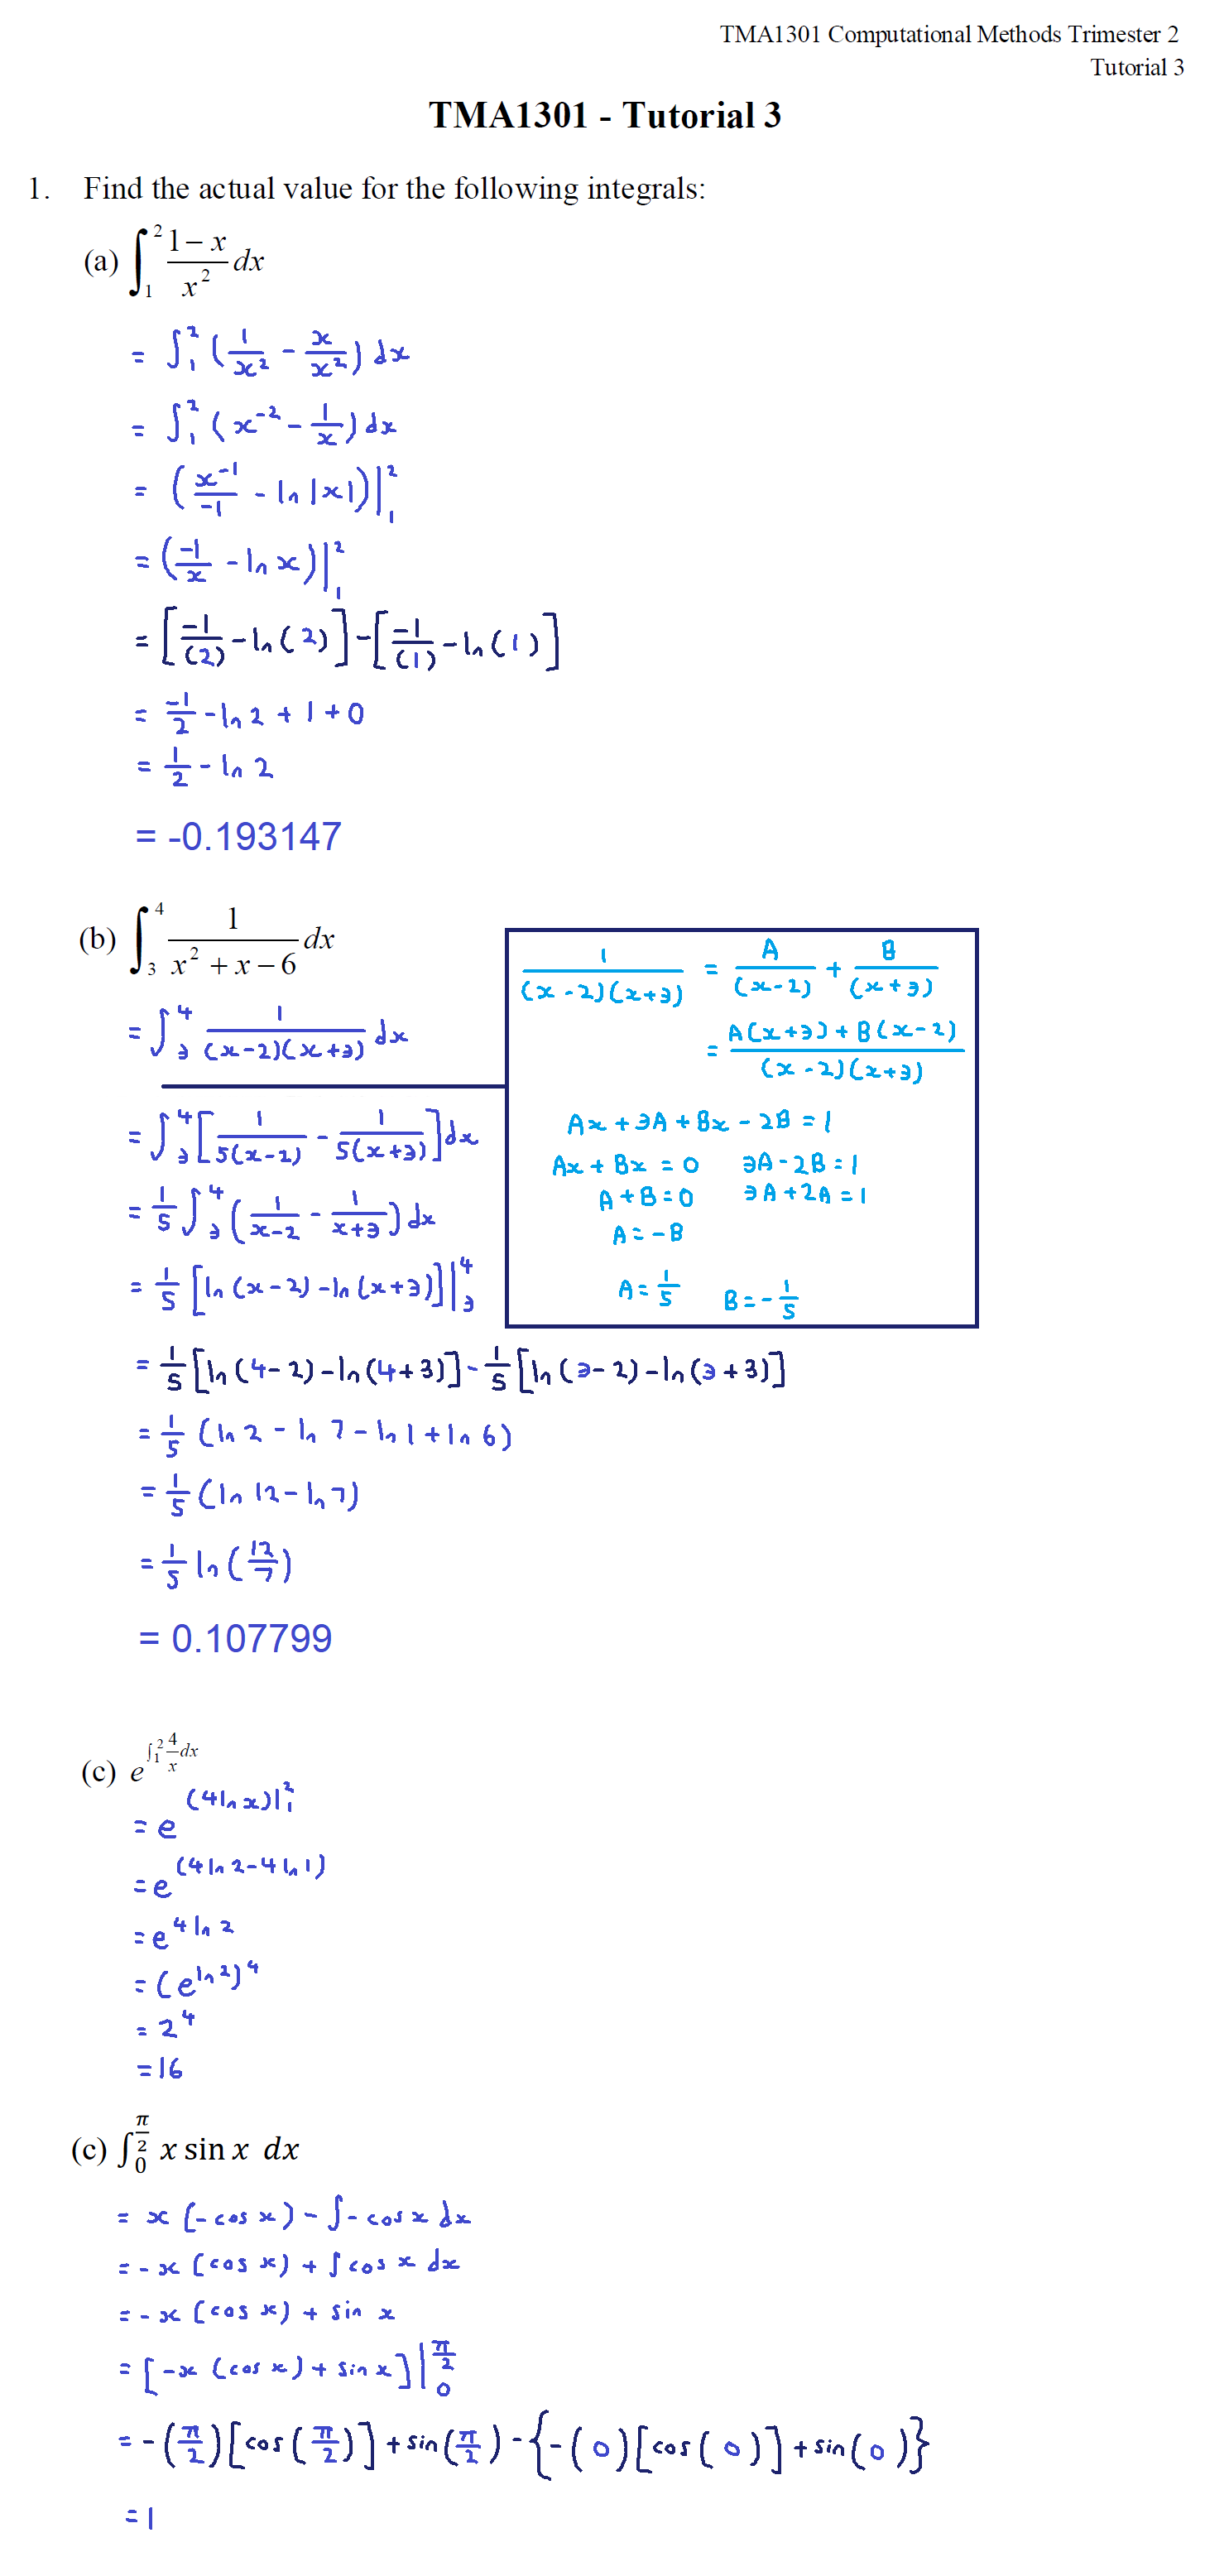 TMA1301 Computational Methods Trimester 2
Tutorial 3
TMA1301 - Tutorial 3
1. Find the actual value for the following integrals:
(a) ∫₁² (1 − x)/x² dx
= ∫₁² (1/x² − x/x²) dx
= ∫₁² (x⁻² − 1/x) dx
= (x⁻¹/−1 − ln|x|)|₁²
= (−1/x − ln x)|₁²
= [−1/(2) − ln(2)] − [−1/(1) − ln(1)]
= −1/2 − ln 2 + 1 + 0
= 1/2 − ln 2
= -0.193147
(b) ∫₃⁴ 1/(x² + x − 6) dx
= ∫₃⁴ 1/((x−2)(x+3)) dx
= ∫₃⁴ [1/(5(x−2)) − 1/(5(x+3))] dx
= 1/5 ∫₃⁴ (1/(x−2) − 1/(x+3)) dx
= 1/5 [ln(x−2) − ln(x+3)]|₃⁴
1/((x−2)(x+3)) = A/(x−2) + B/(x+3)
= (A(x+3) + B(x−2))/((x−2)(x+3))
Ax + 3A + Bx − 2B = 1
Ax + Bx = 0 3A − 2B = 1
A + B = 0 3A + 2A = 1
A = −B
A = 1/5 B = −1/5
= 1/5 [ln(4−2) − ln(4+3)] − 1/5 [ln(3−2) − ln(3+3)]
= 1/5 (ln 2 − ln 7 − ln 1 + ln 6)
= 1/5 (ln 12 − ln 7)
= 1/5 ln(12/7)
= 0.107799
(c) e^(∫₁² 4/x dx)
= e^((4 ln x)|₁²)
= e^(4 ln 2 − 4 ln 1)
= e^(4 ln 2)
= (e^(ln 2))⁴
= 2⁴
= 16
(c) ∫₀^(π/2) x sin x dx
= x (−cos x) − ∫ −cos x dx
= −x (cos x) + ∫ cos x dx
= −x (cos x) + sin x
= [−x (cos x) + sin x]|₀^(π/2)
= −(π/2)[cos(π/2)] + sin(π/2) − {−(0)[cos(0)] + sin(0)}
= 1